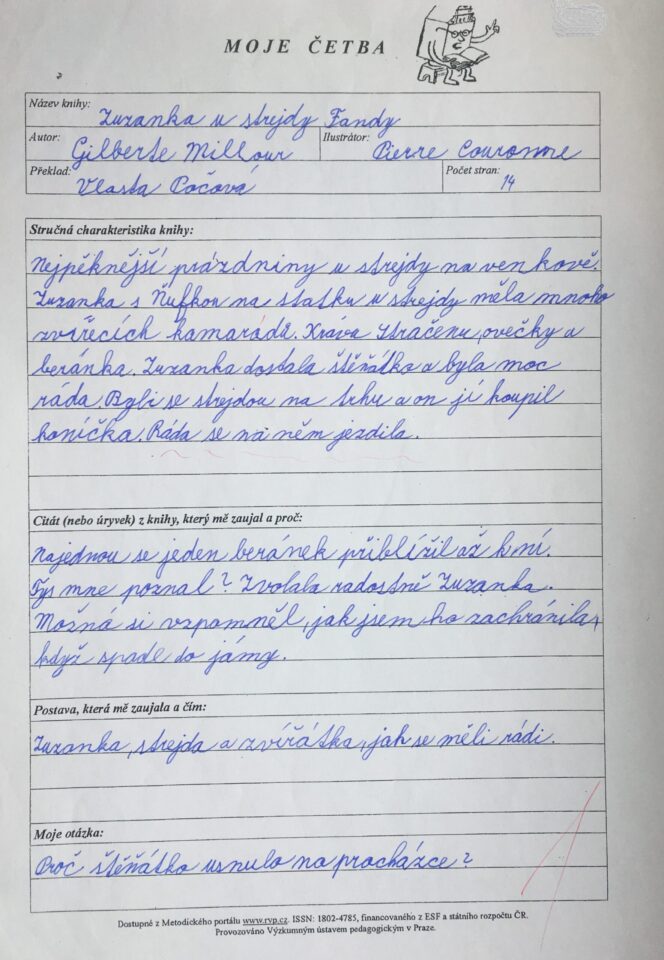 MOJE ČETBA
Název knihy: Zuzanka u strejdy Fandy
Autor: Gilberte Millour Ilustrátor: Pierre Couronne
Překlad: Vlasta Počová Počet stran: 14
Stručná charakteristika knihy:
Nejpěknější prázdniny u strejdy na venkově.
Zuzanka s Ňufkou na statku u strejdy měla mnoho
zvířecích kamarádů. Kráva Stračenu, ovečky a
beránka. Zuzanka dostala štěňátko a byla moc
ráda. Byli se strejdou na trhu a on jí koupil
koníčka. Ráda se na něm jezdila.
Citát (nebo úryvek) z knihy, který mě zaujal a proč:
Najednou se jeden beránek přiblížil až k ní.
Tys mne poznal? Zvolala radostně Zuzanka.
Možná si vzpomněl, jak jsem ho zachránila,
když spadl do jámy.
Postava, která mě zaujala a čím:
Zuzanka, strejda a zvířátka, jak se měli rádi.
Moje otázka:
Proč štěňátko usnulo na procházce?
Dostupné z Metodického portálu www.rvp.cz. ISSN: 1802-4785, financovaného z ESF a státního rozpočtu ČR.
Provozováno Výzkumným ústavem pedagogickým v Praze.